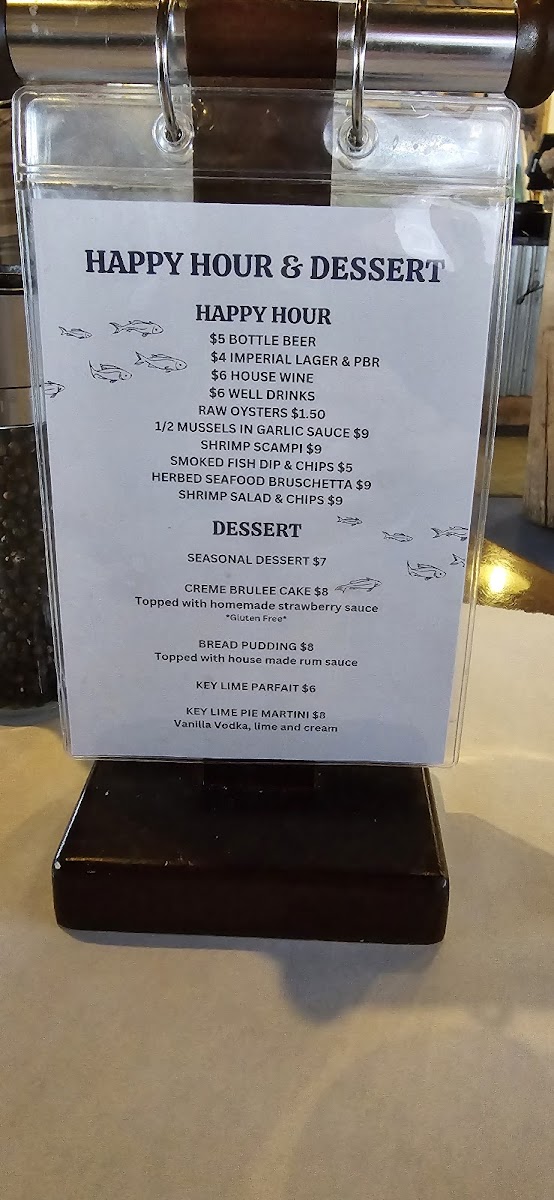 HAPPY HOUR & DESSERT
HAPPY HOUR
$5 BOTTLE BEER
$4 IMPERIAL LAGER & PBR
$6 HOUSE WINE
$6 WELL DRINKS
RAW OYSTERS $1.50
1/2 MUSSELS IN GARLIC SAUCE $9
SHRIMP SCAMPI $9
SMOKED FISH DIP & CHIPS $5
HERBED SEAFOOD BRUSCHETTA $9
SHRIMP SALAD & CHIPS $9
DESSERT
SEASONAL DESSERT $7
CREME BRULEE CAKE $8
Topped with homemade strawberry sauce
*Gluten Free*
BREAD PUDDING $8
Topped with house made rum sauce
KEY LIME PARFAIT $6
KEY LIME PIE MARTINI $8
Vanilla Vodka, lime and cream